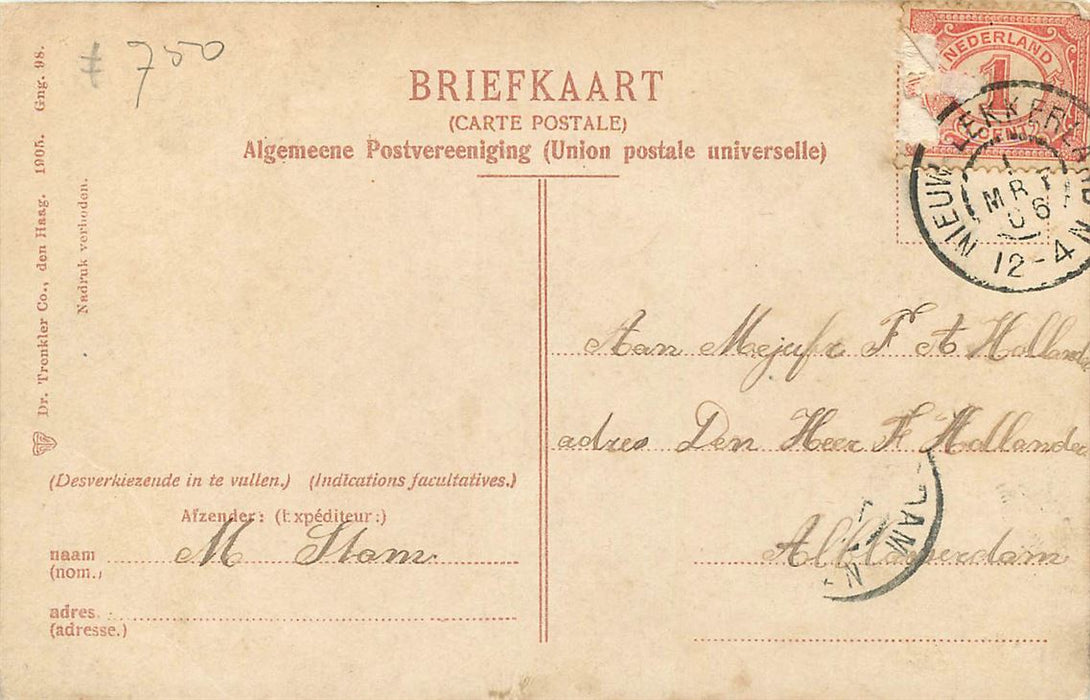 # 750
BRIEFKAART
(CARTE POSTALE)
Algemeene Postvereeniging (Union postale universelle)
NEDERLAND
1
NIEUW-LEKKERLAND
1
MRT
06
12-4 N
Dr. Trenkler Co., den Haag. 1905. Gng. 98.
Nadruk verboden.
Aan Mejufr F A Hollander
adres Den Heer F Hollander
Alblasserdam
(Desverkiezende in te vullen.) (Indications facultatives.)
Afzender: (Expéditeur:)
naam M Stam
(nom.)
adres.
(adresse.)
DAM